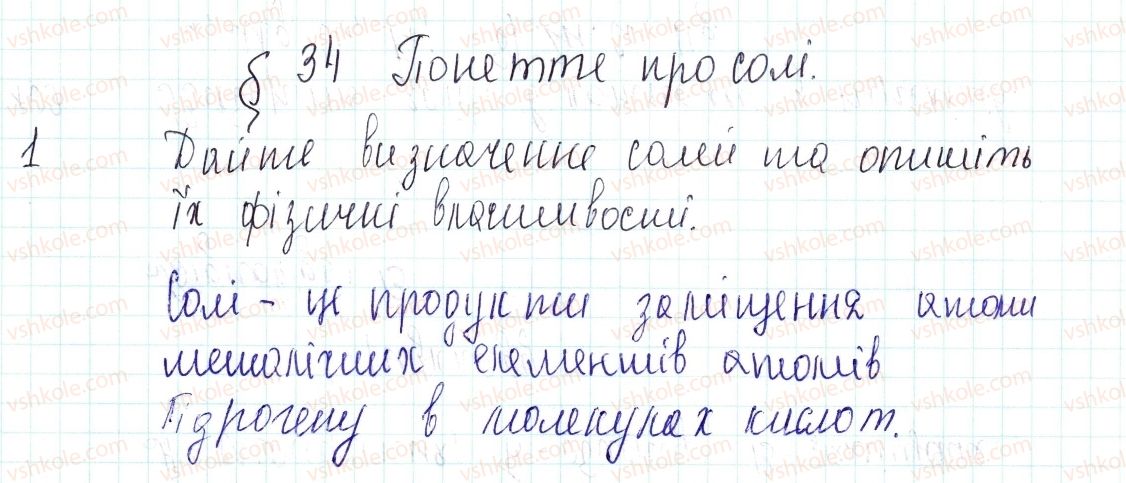 § 34 Понетте про солі.
1 Дайте визначенне солей та опишіть
їх фізичні властивості.
Солі - це продукти заміщення атоми
металічних елементів атомів
Гідрогену в молекулах кислот.